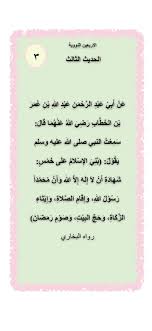 الأربعين النووية
٣
الحديث الثالث
عَنْ أَبِي عَبْدِ الرَّحْمَنِ عَبْدِ اللهِ بْنِ عُمَرَ
بْنِ الْخَطَّابِ رَضِيَ اللهُ عَنْهُمَا قَالَ:
سَمِعْتُ النبي صلى الله عليه وسلم
يَقُوْلُ: (بُنِيَ الإِسْلامُ عَلَى خَمْسٍ:
شَهَادَةِ أَنْ لاَ إِلَهَ إِلاَّ اللهُ وَأَنَّ مُحَمَّدَاً
رَسُوْلُ اللهِ، وَإِقَامِ الصَّلاةِ، وَإِيْتَاءِ
الزَّكَاةِ، وَحَجِّ البَيْتِ، وَصَوْمِ رَمَضَانَ)
رواه البخاري